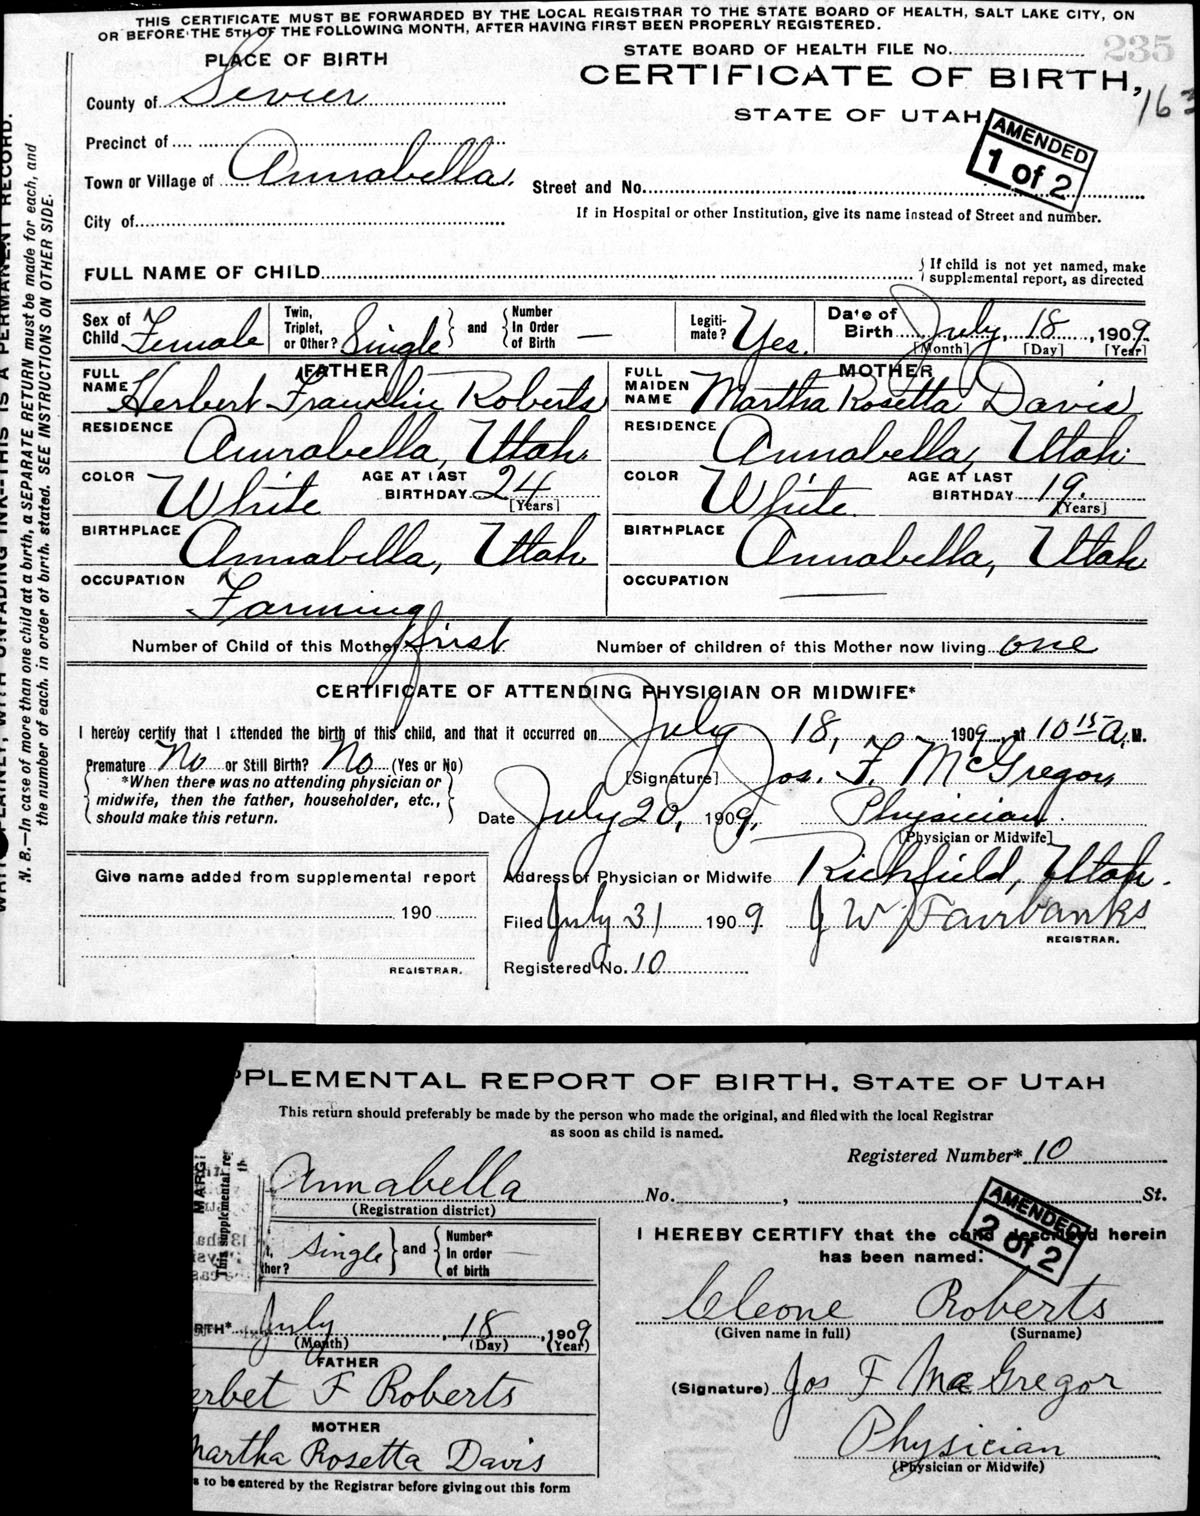 THIS CERTIFICATE MUST BE FORWARDED BY THE LOCAL REGISTRAR TO THE STATE BOARD OF HEALTH, SALT LAKE CITY, ON
OR BEFORE THE 5TH OF THE FOLLOWING MONTH, AFTER HAVING FIRST BEEN PROPERLY REGISTERED.
PLACE OF BIRTH
STATE BOARD OF HEALTH FILE No. 235
CERTIFICATE OF BIRTH,
163
STATE OF UTAH
AMENDED
1 of 2
County of Sevier
Precinct of
Town or Village of Annabella.
Street and No.
City of
If in Hospital or other Institution, give its name instead of Street and number.
FULL NAME OF CHILD
If child is not yet named, make
supplemental report, as directed
Sex of Child Female
Twin, Triplet, or Other? Single and Number In Order of Birth —
Legiti-mate? Yes.
Date of Birth July, 18, 1909.
[Month] [Day] [Year]
FATHER
FULL NAME Herbert Franklin Roberts
RESIDENCE Annabella, Utah.
COLOR White AGE AT LAST BIRTHDAY 24
[Years]
BIRTHPLACE Annabella, Utah
OCCUPATION Farming
MOTHER
FULL MAIDEN NAME Martha Rosetta Davis
RESIDENCE Annabella, Utah.
COLOR White. AGE AT LAST BIRTHDAY 19.
[Years]
BIRTHPLACE Annabella, Utah
OCCUPATION —
Number of Child of this Mother first
Number of children of this Mother now living one
CERTIFICATE OF ATTENDING PHYSICIAN OR MIDWIFE*
I hereby certify that I attended the birth of this child, and that it occurred on July 18, 1909, at 10 15 A. M.
Premature No or Still Birth? No (Yes or No)
*When there was no attending physician or
midwife, then the father, householder, etc.,
should make this return.
[Signature] Jos. F. McGregor,
Date July 20, 1909. Physician.
[Physician or Midwife]
Give name added from supplemental report
190
REGISTRAR.
Address of Physician or Midwife Richfield, Utah.
Filed July 31 1909. J W Fairbanks
REGISTRAR.
Registered No. 10
PLAINLY, WITH UNFADING INK—THIS IS A PERMANENT RECORD.
N. B.—In case of more than one child at a birth, a SEPARATE RETURN must be made for each, and
the number of each, in order of birth, stated. SEE INSTRUCTIONS ON OTHER SIDE.
PPLEMENTAL REPORT OF BIRTH, STATE OF UTAH
This return should preferably be made by the person who made the original, and filed with the local Registrar
as soon as child is named.
Registered Number* 10
Annabella
(Registration district)
No. , St.
MARGI
This supplemental rep
th
t,
ther? Single and Number* In order of birth
I HEREBY CERTIFY that the child described herein
has been named:
AMENDED
2 of 2
Cleone Roberts
(Given name in full) (Surname)
RTH* July, 18, 1909
(Month) (Day) (Year)
FATHER
erbet F Roberts
MOTHER
Martha Rosetta Davis
s to be entered by the Registrar before giving out this form
(Signature) Jos F MacGregor
Physician
(Physician or Midwife)